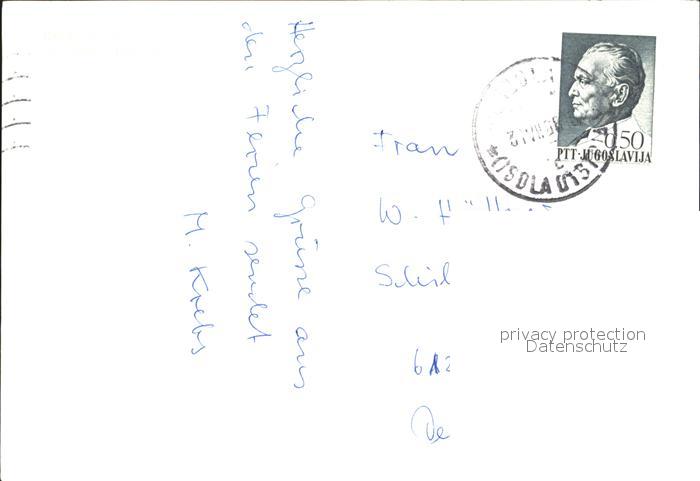 Herzliche Grüsse aus
den Ferien sendet
M. Krebs
Frau
W.
612
De
0.50
PTT·JUGOSLAVIJA
privacy protection
Datenschutz